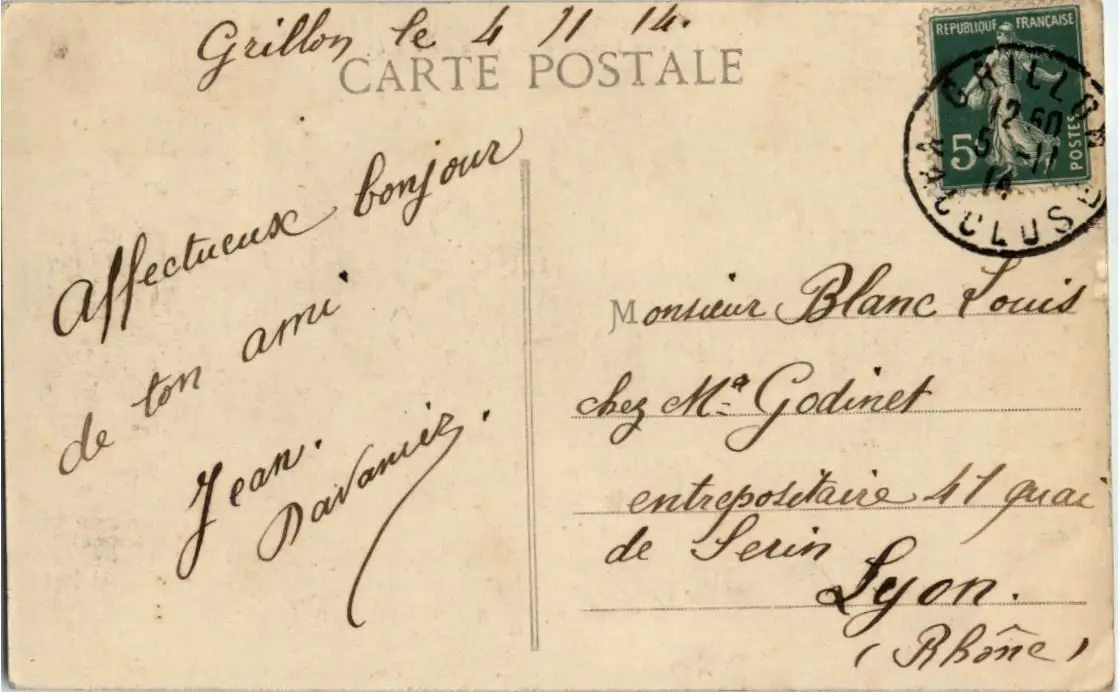 Grillon le 4 11 14.
CARTE POSTALE
REPUBLIQUE FRANÇAISE
5
POSTES
GRILLON
12 50
5 -11
14
VAUCLUSE
Affectueux bonjour
de ton ami
Jean.
Monsieur Blanc Louis
chez Mr Godinet
entrepositaire 41 quai
de Serin
Lyon.
(Rhône)